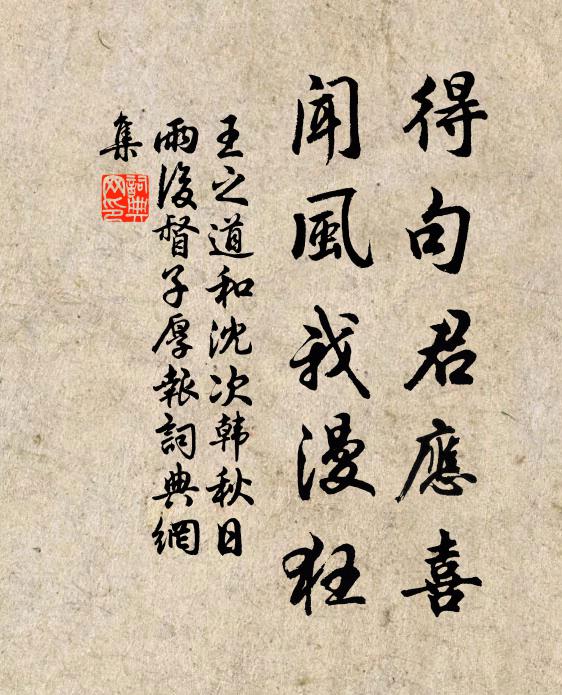 得句君應喜
聞風我漫狂
王之道和沈次韩秋日
雨後督子厚報詞典網
集
詞典
网印